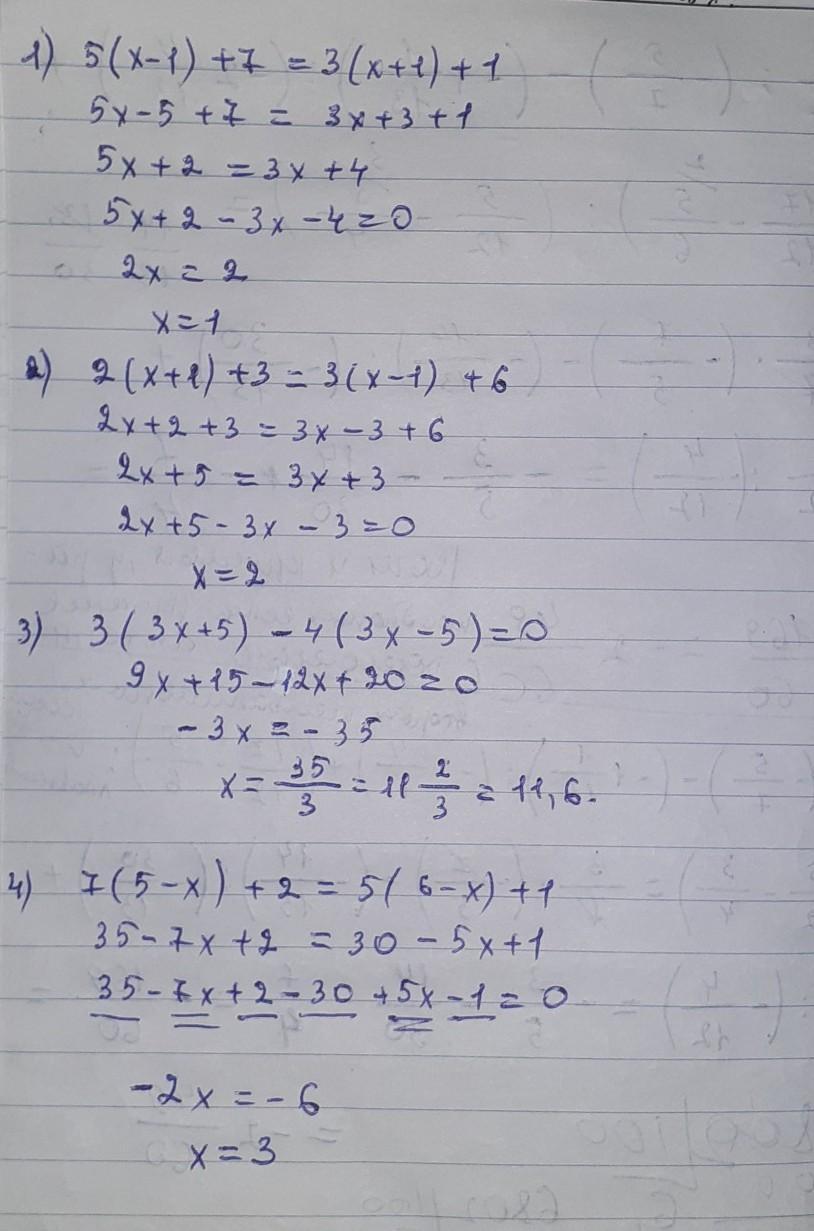 1) 5(x-1)+7 = 3(x+1)+1
5x-5+7 = 3x+3+1
5x+2 = 3x+4
5x+2-3x-4=0
2x = 2
x=1
2) 2(x+1)+3=3(x-1)+6
2x+2+3=3x-3+6
2x+5 = 3x+3
2x+5-3x-3=0
x=2
3) 3(3x+5)-4(3x-5)=0
9x+15-12x+20=0
-3x=-35
x=35/3=11 2/3=11,6.
4) 7(5-x)+2=5(6-x)+1
35-7x+2=30-5x+1
35-7x+2-30+5x-1=0
-2x=-6
x=3